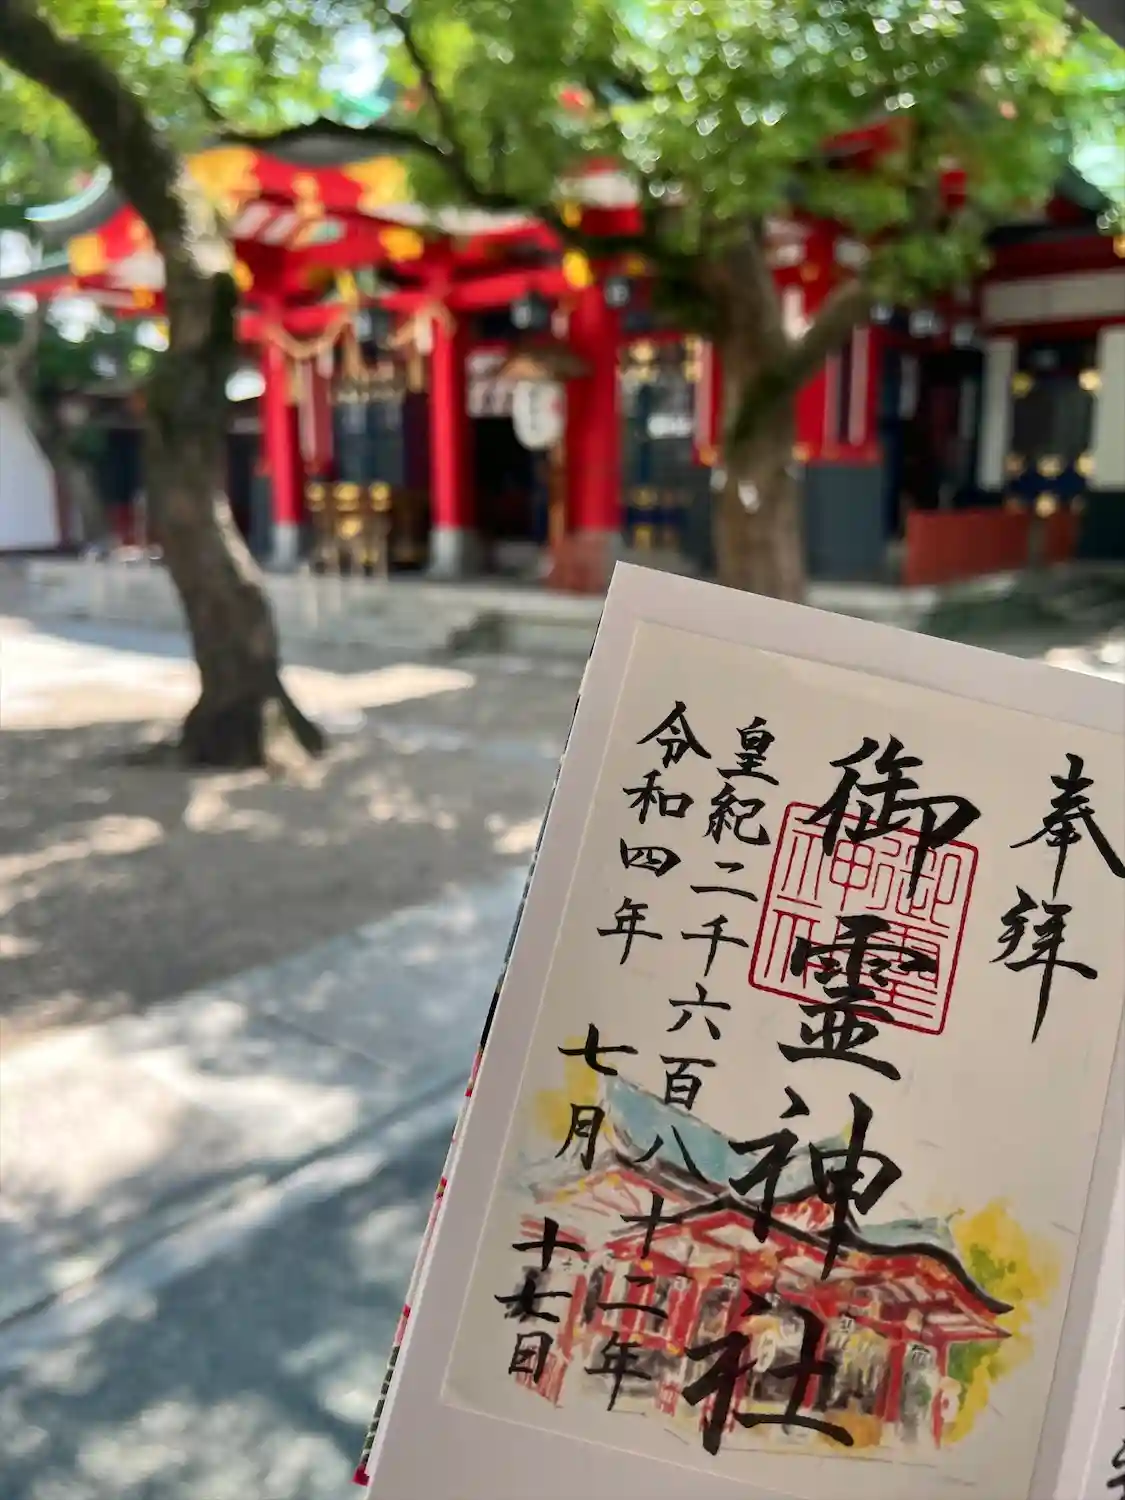 奉拝
御霊神社
御霊神社
皇紀二千六百八十二年
令和四年七月十七日